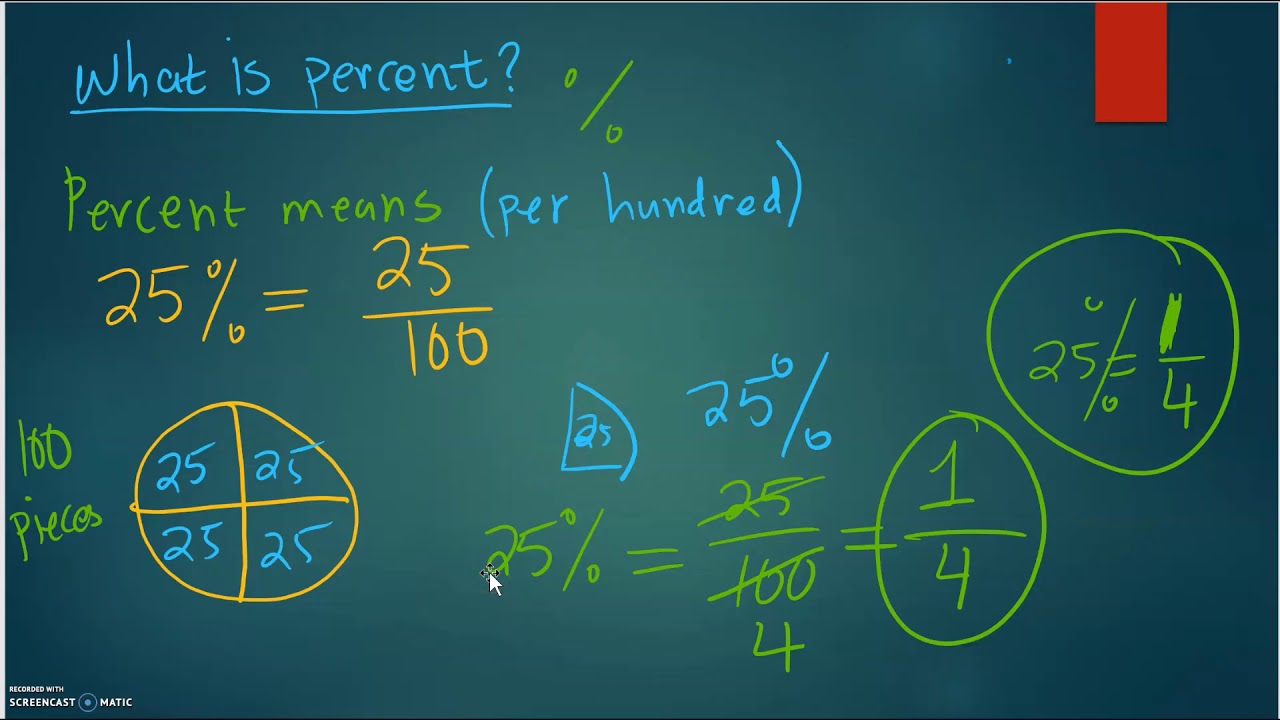 What is percent? %
Percent means (per hundred)
25% = 25/100
25% = 1/4
100 pieces
25 25
25 25
25
25%
25% = 25/100 = 1/4
4
RECORDED WITH
SCREENCAST MATIC